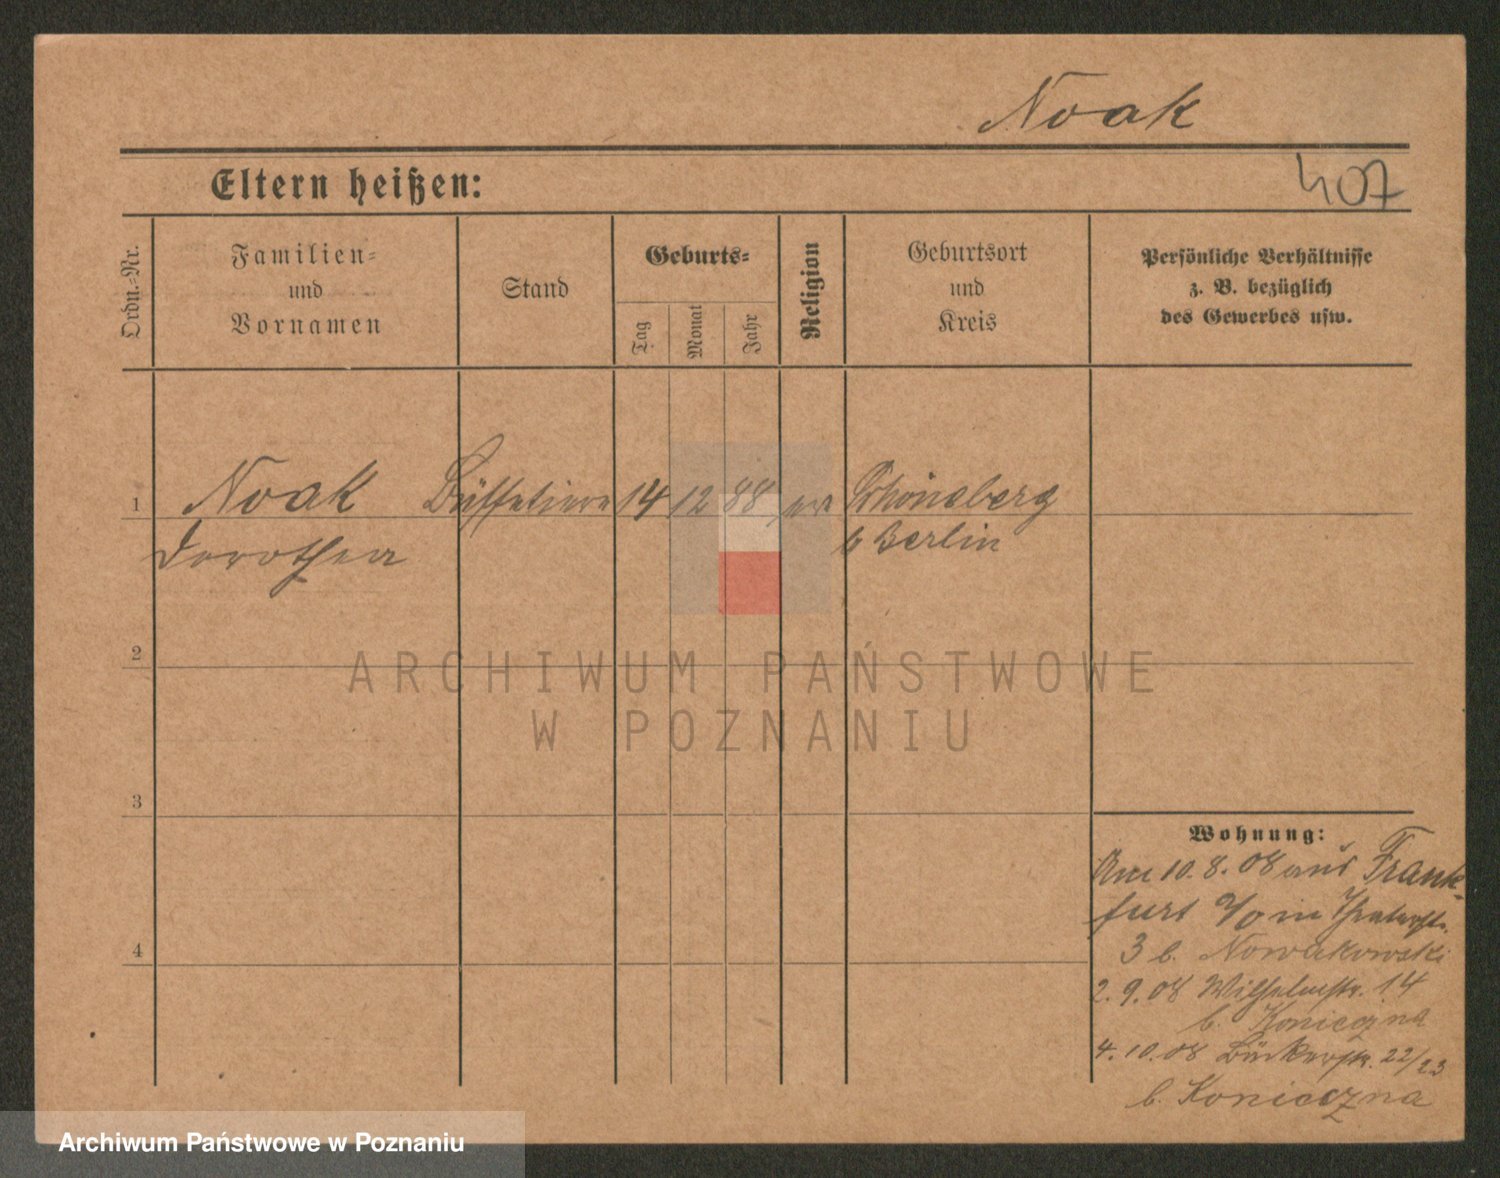 Noak
Eltern heißen:
407
Ordn.-Nr.
Familien-
und
Vornamen
Stand
Geburts-
Tag
Monat
Jahr
Religion
Geburtsort
und
Kreis
Persönliche Verhältnisse
z. B. bezüglich
des Gewerbes usw.
1
Noak Büffetiere 14 12 88 Schöneberg
Dorothea b Berlin
2
ARCHIWUM PAŃSTWOWE
W POZNANIU
3
Wohnung:
Am 10.8.08 aus Frank-
furt %O in Theaterstr.
3 b. Nowakowski
2.9.08 Wilhelmstr. 14
b. Konieczna
4.10.08 Bäckerstr. 22/23
b. Konieczna
4
Archiwum Państwowe w Poznaniu